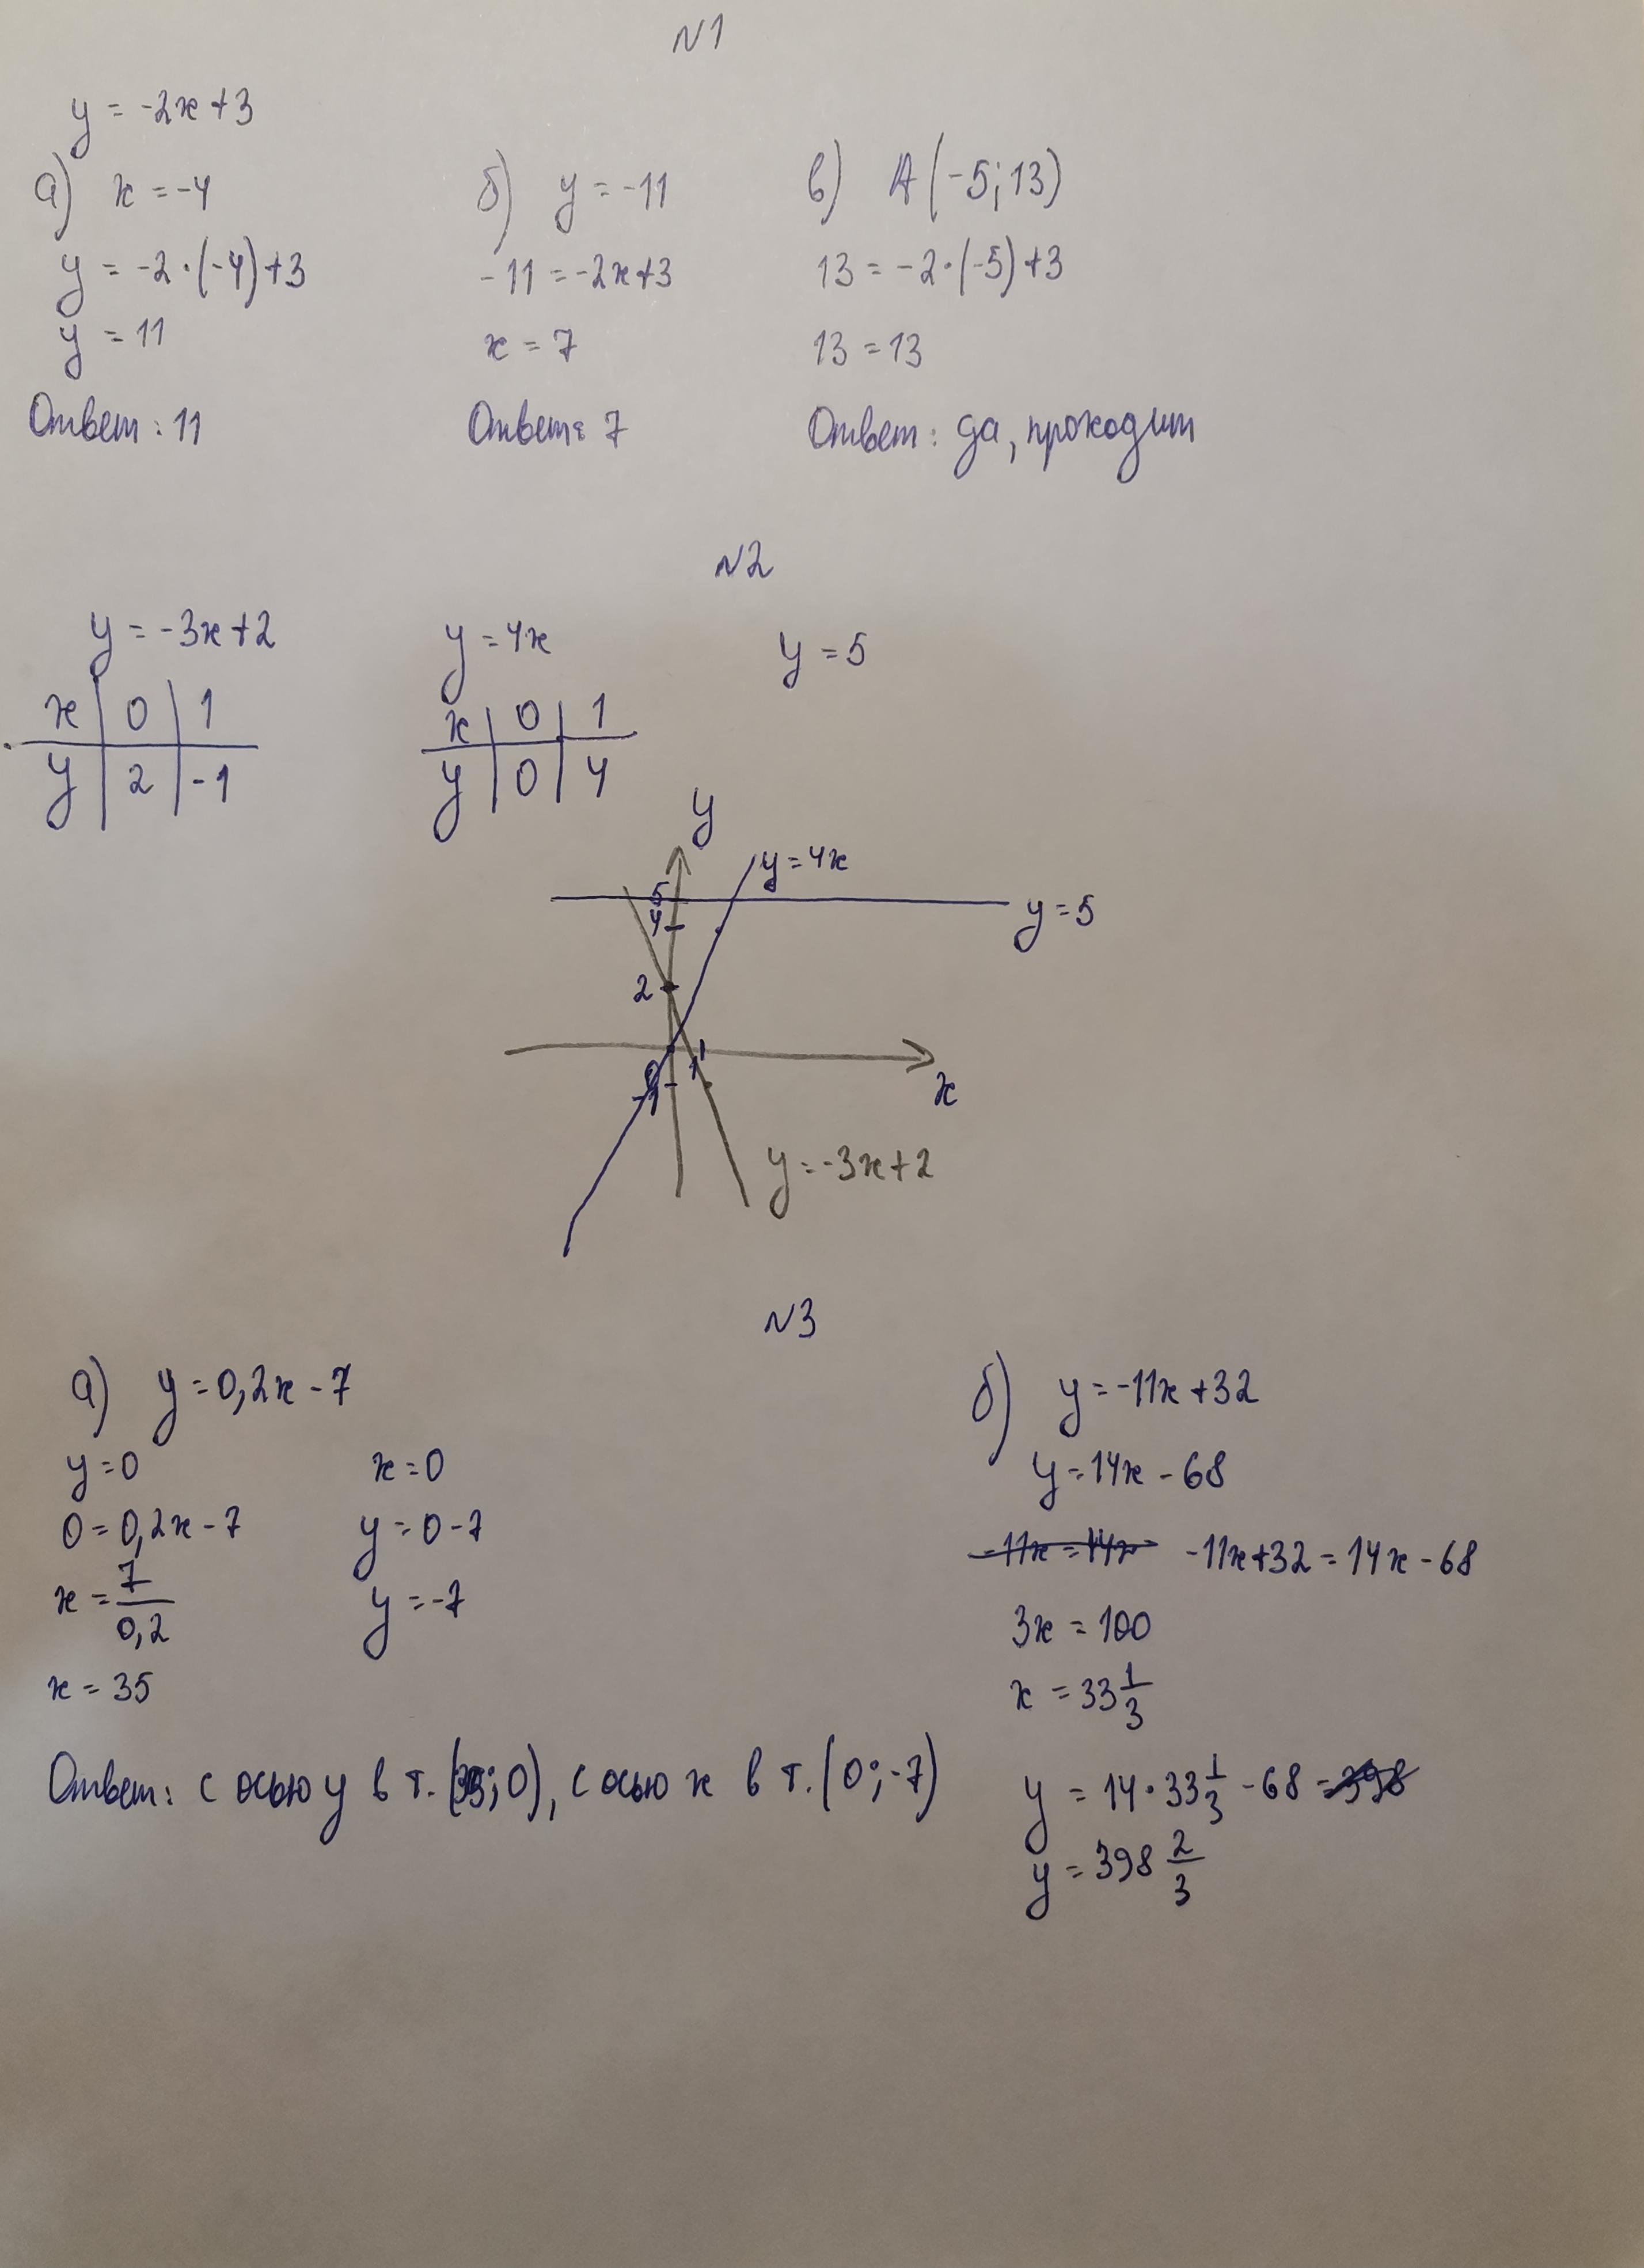 N1
y = -2x + 3
а) x = -4
y = -2·(-4)+3
y = 11
Ответ: 11
б) y = -11
-11 = -2x+3
x = 7
Ответ: 7
в) A(-5; 13)
13 = -2·(-5)+3
13 = 13
Ответ: да, проходит
N2
y = -3x+2
x 0 1
y 2 -1
y = 4x
x 0 1
y 0 4
y = 5
y
y = 4x
5
y = 5
4
2
0 1
-1
x
y = -3x+2
N3
а) y = 0,2x - 7
y = 0
0 = 0,2x - 7
x = 7/0,2
x = 35
x = 0
y = 0 - 7
y = -7
Ответ: с осью y в т. (35; 0), с осью x в т. (0; -7)
б) y = -11x + 32
y = 14x - 68
-11x = 14x -11x+32 = 14x - 68
3x = 100
x = 33 1/3
y = 14·33 1/3 - 68 = 398
y = 398 2/3